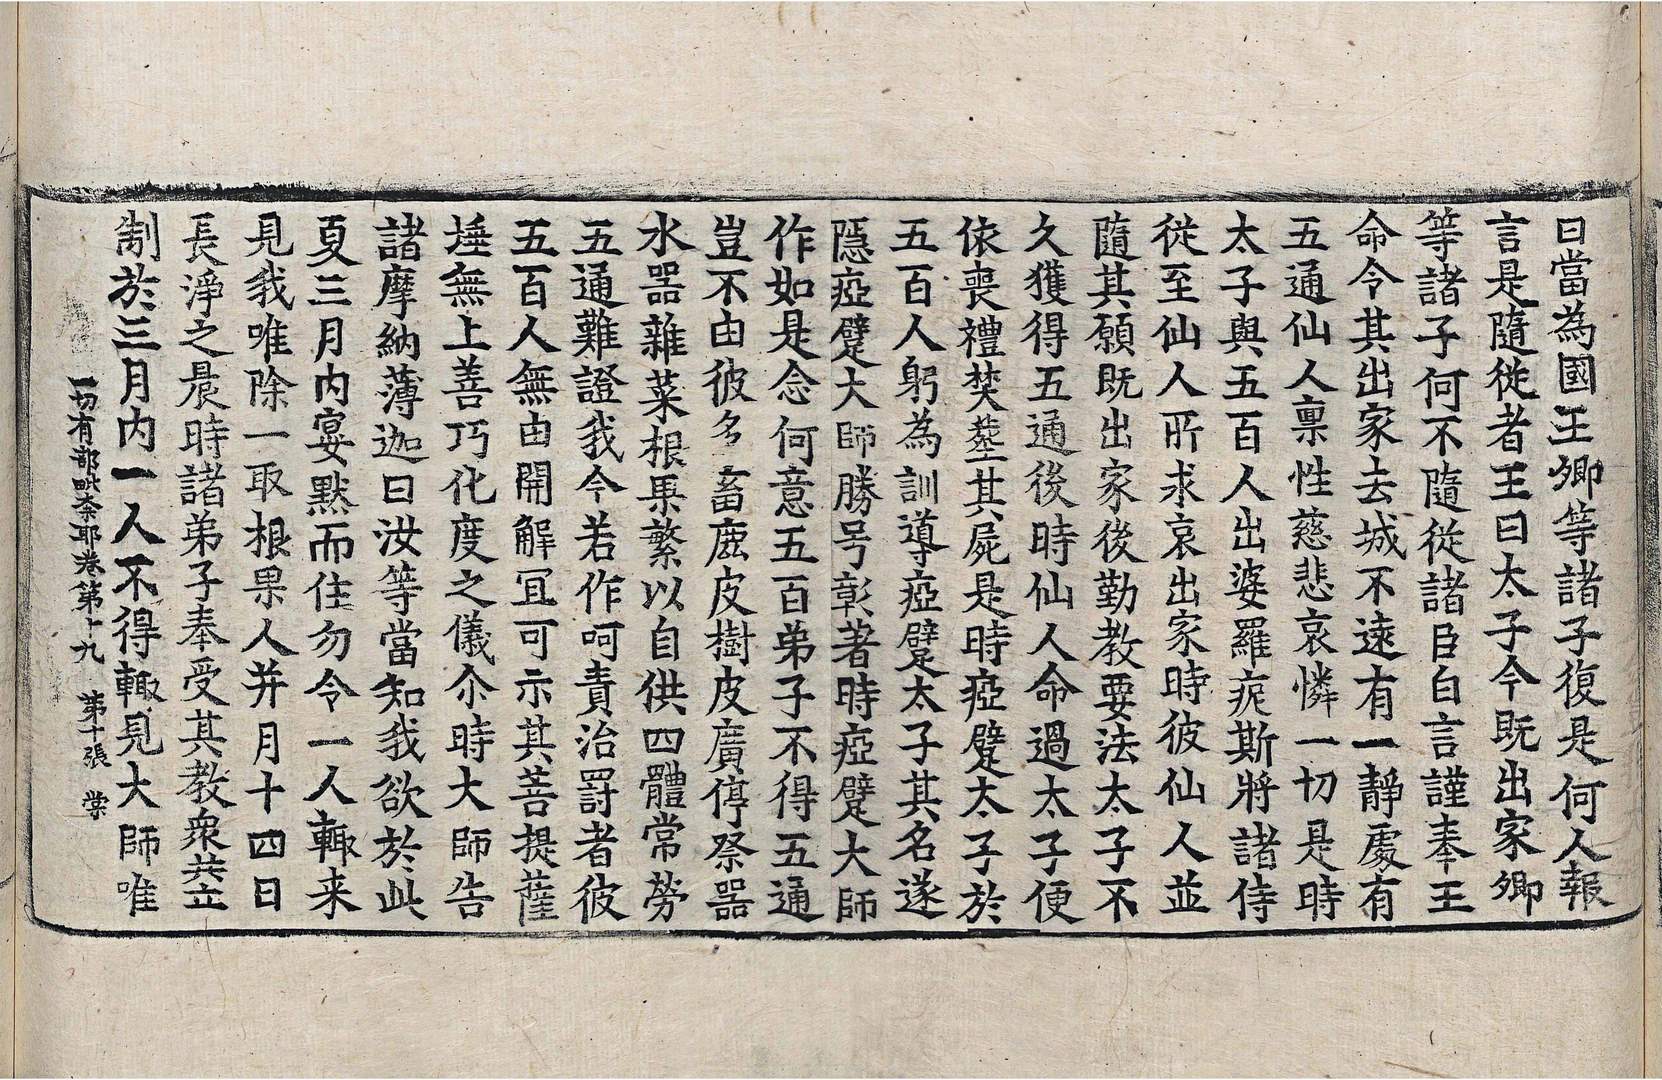 曰當為國王卿等諸子復是何人報
言是隨從者王曰太子今既出家卿
等諸子何不隨從諸臣白言謹奉王
命令其出家去城不遠有一靜處有
五通仙人禀性慈悲哀憐一切是時
太子與五百人出婆羅痆斯將諸侍
從至仙人所求哀出家時彼仙人並
隨其願既出家後勤教要法太子不
久獲得五通後時仙人命過太子便
依喪禮焚葬其屍是時瘂躄太子於
五百人躬為訓導瘂躄太子其名遂
隱瘂躄大師勝号彰著時瘂躄大師
作如是念何意五百弟子不得五通
豈不由彼多畜鹿皮樹皮廣停祭器
水器雜菜根果繁以自供四體常勞
五通難證我今若作呵責治罸者彼
五百人無由開解冝可示其菩提薩
埵無上善巧化度之儀尒時大師告
諸摩納薄迦曰汝等當知我欲於此
夏三月內宴默而住勿令一人輙来
見我唯除一取根果人并月十四日
長淨之晨時諸弟子奉受其教衆共立
制於三月內一人不得輙見大師唯
一切有部毗柰耶卷第十九 第十張 棠